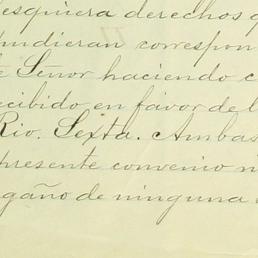 esquiera derechos q
udieran correspon
te Señor haciendo c
ecibido en favor del
Rio. Sexta. Ambas
presente convenio n
gaño de ninguna